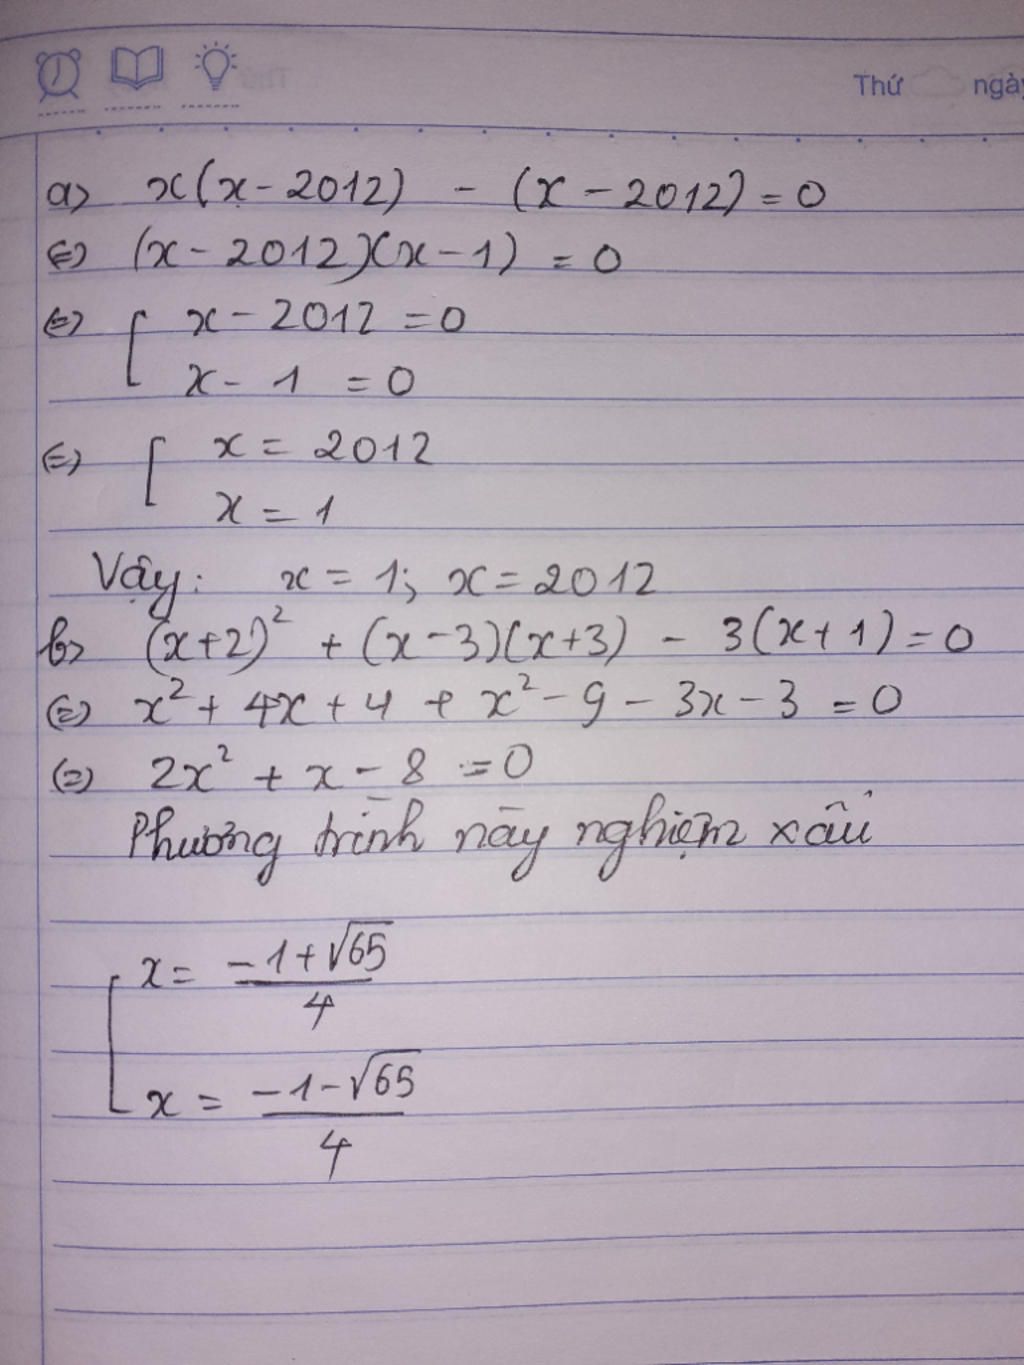 Thứ ngày
a) x(x - 2012) - (x - 2012) = 0
(=) (x - 2012)(x - 1) = 0
(=) [ x - 2012 = 0
x - 1 = 0
(=) [ x = 2012
x = 1
Vậy: x = 1; x = 2012
b) (x+2)² + (x-3)(x+3) - 3(x+1) = 0
(=) x² + 4x + 4 + x² - 9 - 3x - 3 = 0
(=) 2x² + x - 8 = 0
Phương trình này nghiệm xấu
[ x = (-1+√65)/4
x = (-1-√65)/4